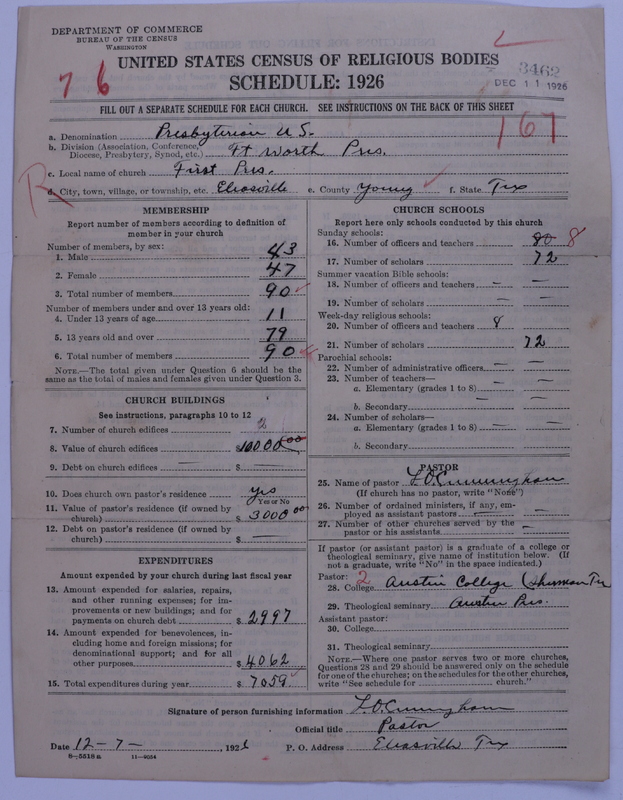 DEPARTMENT OF COMMERCE
BUREAU OF THE CENSUS
WASHINGTON
76
UNITED STATES CENSUS OF RELIGIOUS BODIES
SCHEDULE: 1926
3462
DEC 11 1926
FILL OUT A SEPARATE SCHEDULE FOR EACH CHURCH. SEE INSTRUCTIONS ON THE BACK OF THIS SHEET
167
a. Denomination Presbyterian U.S.
b. Division (Association, Conference, Diocese, Presbytery, Synod, etc.) Ft Worth Pres.
c. Local name of church First Pres.
R
d. City, town, village, or township, etc. Eliasville e. County Young f. State Tex
MEMBERSHIP
Report number of members according to definition of
member in your church
Number of members, by sex:
1. Male 43
2. Female 47
3. Total number of members 90
Number of members under and over 13 years old:
4. Under 13 years of age 11
5. 13 years old and over 79
6. Total number of members 90
NOTE.—The total given under Question 6 should be
same as the total of males and females given under Question 3.
CHURCH BUILDINGS
See instructions, paragraphs 10 to 12
7. Number of church edifices 2
8. Value of church edifices $10000 00
9. Debt on church edifices — $ —
10. Does church own pastor's residence yes
Yes or No
11. Value of pastor's residence (if owned by
church) $ 3000 00
12. Debt on pastor's residence (if owned by
church) $ —
EXPENDITURES
Amount expended by your church during last fiscal year
13. Amount expended for salaries, repairs,
and other running expenses; for im-
provements or new buildings; and for
payments on church debt $ 2997
14. Amount expended for benevolences, in-
cluding home and foreign missions; for
denominational support; and for all
other purposes $ 4062
15. Total expenditures during year $ 7059
CHURCH SCHOOLS
Report here only schools conducted by this church
Sunday schools:
16. Number of officers and teachers 80 8
17. Number of scholars 72
Summer vacation Bible schools:
18. Number of officers and teachers — —
19. Number of scholars — —
Week-day religious schools:
20. Number of officers and teachers 8
21. Number of scholars 72
Parochial schools:
22. Number of administrative officers — —
23. Number of teachers—
a. Elementary (grades 1 to 8) — —
b. Secondary — —
24. Number of scholars—
a. Elementary (grades 1 to 8) — —
b. Secondary
PASTOR
25. Name of pastor L.O. Cunningham
(If church has no pastor, write "None")
26. Number of ordained ministers, if any, em-
ployed as assistant pastors —
27. Number of other churches served by the
pastor or his assistants —
If pastor (or assistant pastor) is a graduate of a college or
theological seminary, give name of institution below. (If
not a graduate, write "No" in the space indicated.)
Pastor: 2
28. College Austin College (Sherman Tex
29. Theological seminary Austin Pres.
Assistant pastor:
30. College
31. Theological seminary
NOTE.—Where one pastor serves two or more churches,
Questions 28 and 29 should be answered only on the schedule
for one of the churches; on the schedules for the other churches,
write "See schedule for church."
Signature of person furnishing information L.O. Cunningham
Official title Pastor
Date 12-7- , 1926 P. O. Address Eliasville Tex
8-5518 a 11-9054